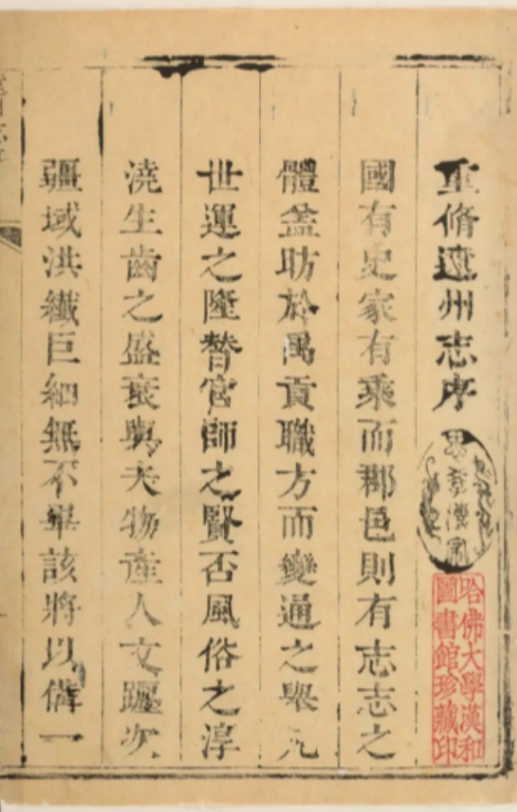 重脩遼州志序
哈佛大學漢和
圖書館珍藏印
國有史家有乘而郡邑則有志志之
體盖昉於禹貢職方而變通之舉凡
世運之隆替官師之賢否風俗之淳
澆生齒之盛衰與夫物產人文躔次
疆域洪纖巨細無不畢該將以備一